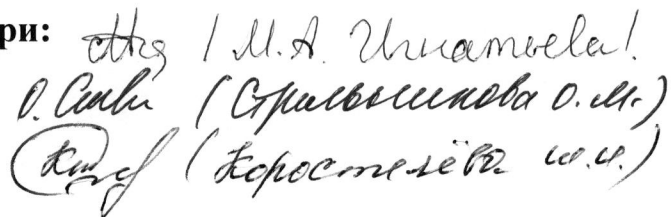 ри: / М.А. Игнатьева /
(Стрельникова О.М.)
(Коростелёва